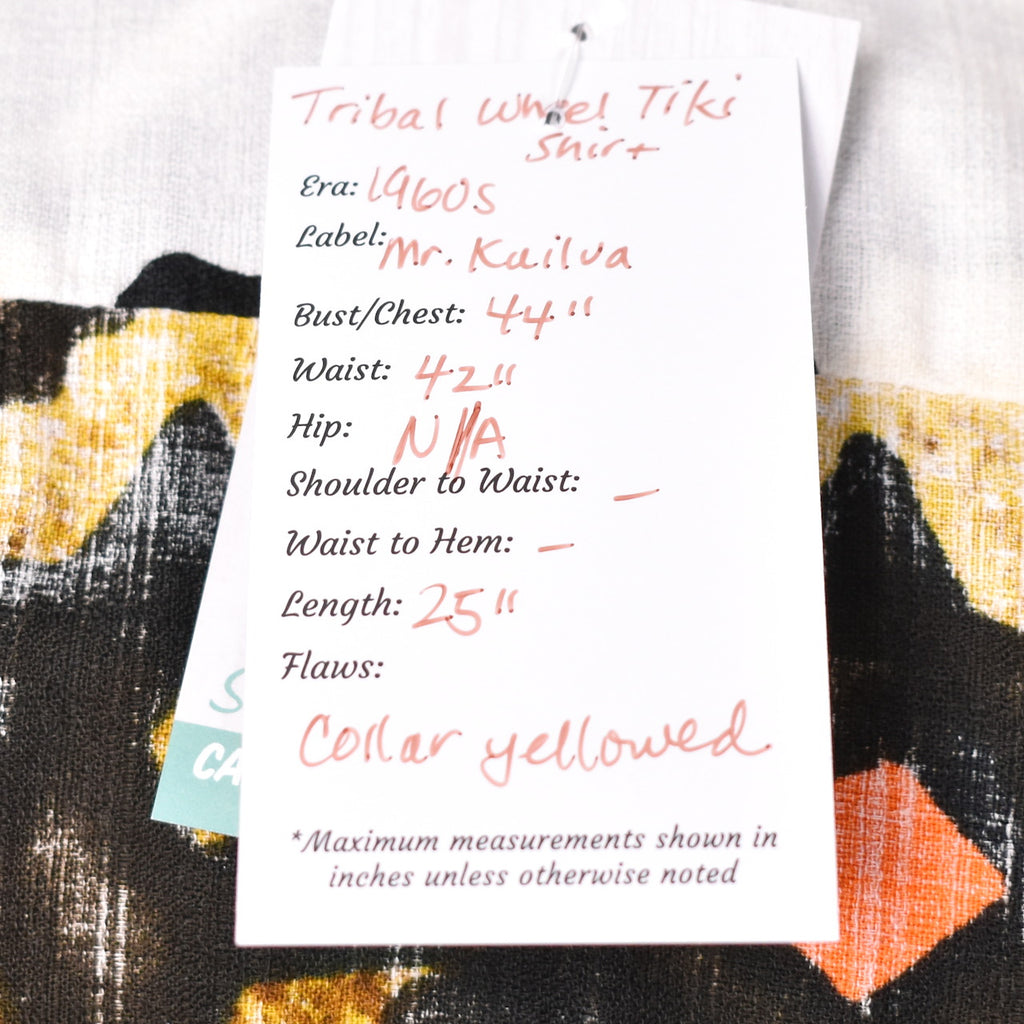 Tribal Wheel Tiki
Shirt
Era: 1960s
Label: Mr. Kailua
Bust/Chest: 44"
Waist: 42"
Hip: N/A
Shoulder to Waist: —
Waist to Hem: —
Length: 25"
Flaws:
Collar yellowed
*Maximum measurements shown in
inches unless otherwise noted